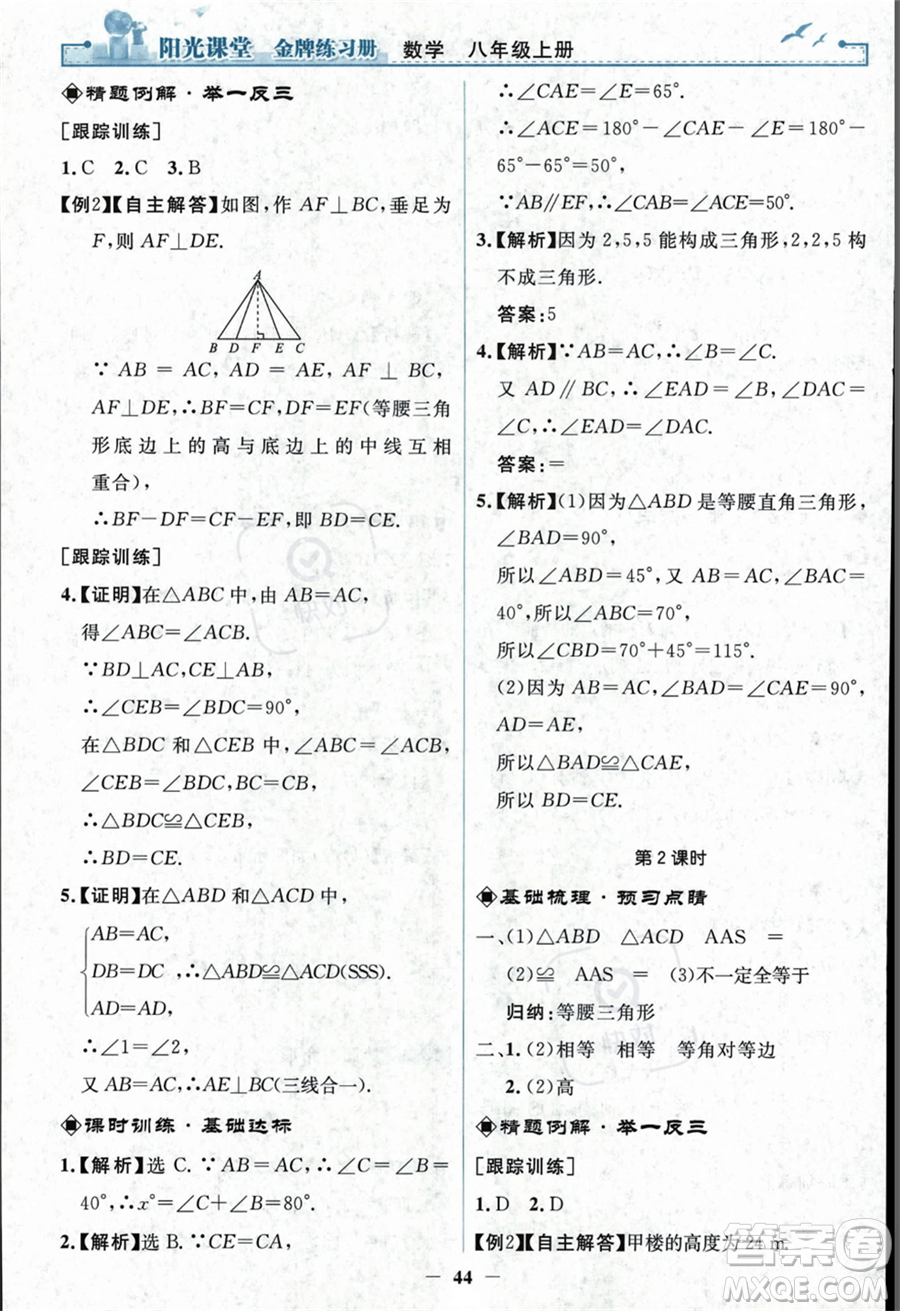 阳光课堂 金牌练习册 数学 八年级上册
精题例解·举一反三
[跟踪训练]
1.C 2.C 3.B
【例2】【自主解答】如图,作 AF⊥BC,垂足为
F,则 AF⊥DE.
A
B D F E C
∵ AB = AC, AD = AE,
AF⊥DE,∴BF=CF,DF=EF(等腰三角
形底边上的高与底边上的中线互相
重合),
∴BF-DF=CF-EF,即 BD=CE.
[跟踪训练]
4.【证明】在△ABC 中,由 AB=AC,
得∠ABC=∠ACB.
∵BD⊥AC,CE⊥AB,
∴∠CEB=∠BDC=90°,
在△BDC 和△CEB 中,∠ABC=∠ACB,
∠CEB=∠BDC=90°,BC=CB,
∴△BDC≌△CEB,
∴BD=CE.
5.【证明】在△ABD 和△ACD 中,
AB=AC,
DB=DC ,∴△ABD≌△ACD(SSS).
AD=AD,
∴∠1=∠2,
又 AB=AC,∴AE⊥BC(三线合一).
课时训练·基础达标
1.【解析】选 C. ∵AB=AC,∴∠C=∠B=
40°,∴x°=∠C+∠B=80°.
2.【解析】选 B. ∵CE=CA,
∴∠CAE=∠E=65°.
∴∠ACE=180°-∠CAE-∠E=180°-
65°-65°=50°.
∵AB∥EF,∴∠CAB=∠ACE=50°.
3.【解析】因为 2,5,5 能构成三角形,2,2,5 构
不成三角形.
答案:5
4.【解析】∵AB=AC,∴∠B=∠C.
又 AD∥BC,∴∠EAD=∠B,∠DAC=
∠C,∴∠EAD=∠DAC.
答案:=
5.【解析】(1)因为△ABD 是等腰直角三角形,
∠BAD=90°,
所以∠ABD=45°,又 AB=AC,∠BAC=
40°,所以∠ABC=70°,
所以∠CBD=70°+45°=115°.
(2)因为 AB=AC,∠BAD=∠CAE=90°,
AD=AE,
所以△BAD≌△CAE,
所以 BD=CE.
第2课时
基础梳理·预习点睛
一、(1)△ABD △ACD AAS =
(2)≌ AAS = (3)不一定全等于
归纳:等腰三角形
二、1.(2)相等 相等 等角对等边
2.(2)高
精题例解·举一反三
[跟踪训练]
1.D 2.D
【例2】【自主解答】甲楼的高度为 24 m.
44
答案圈
MXQE.COM